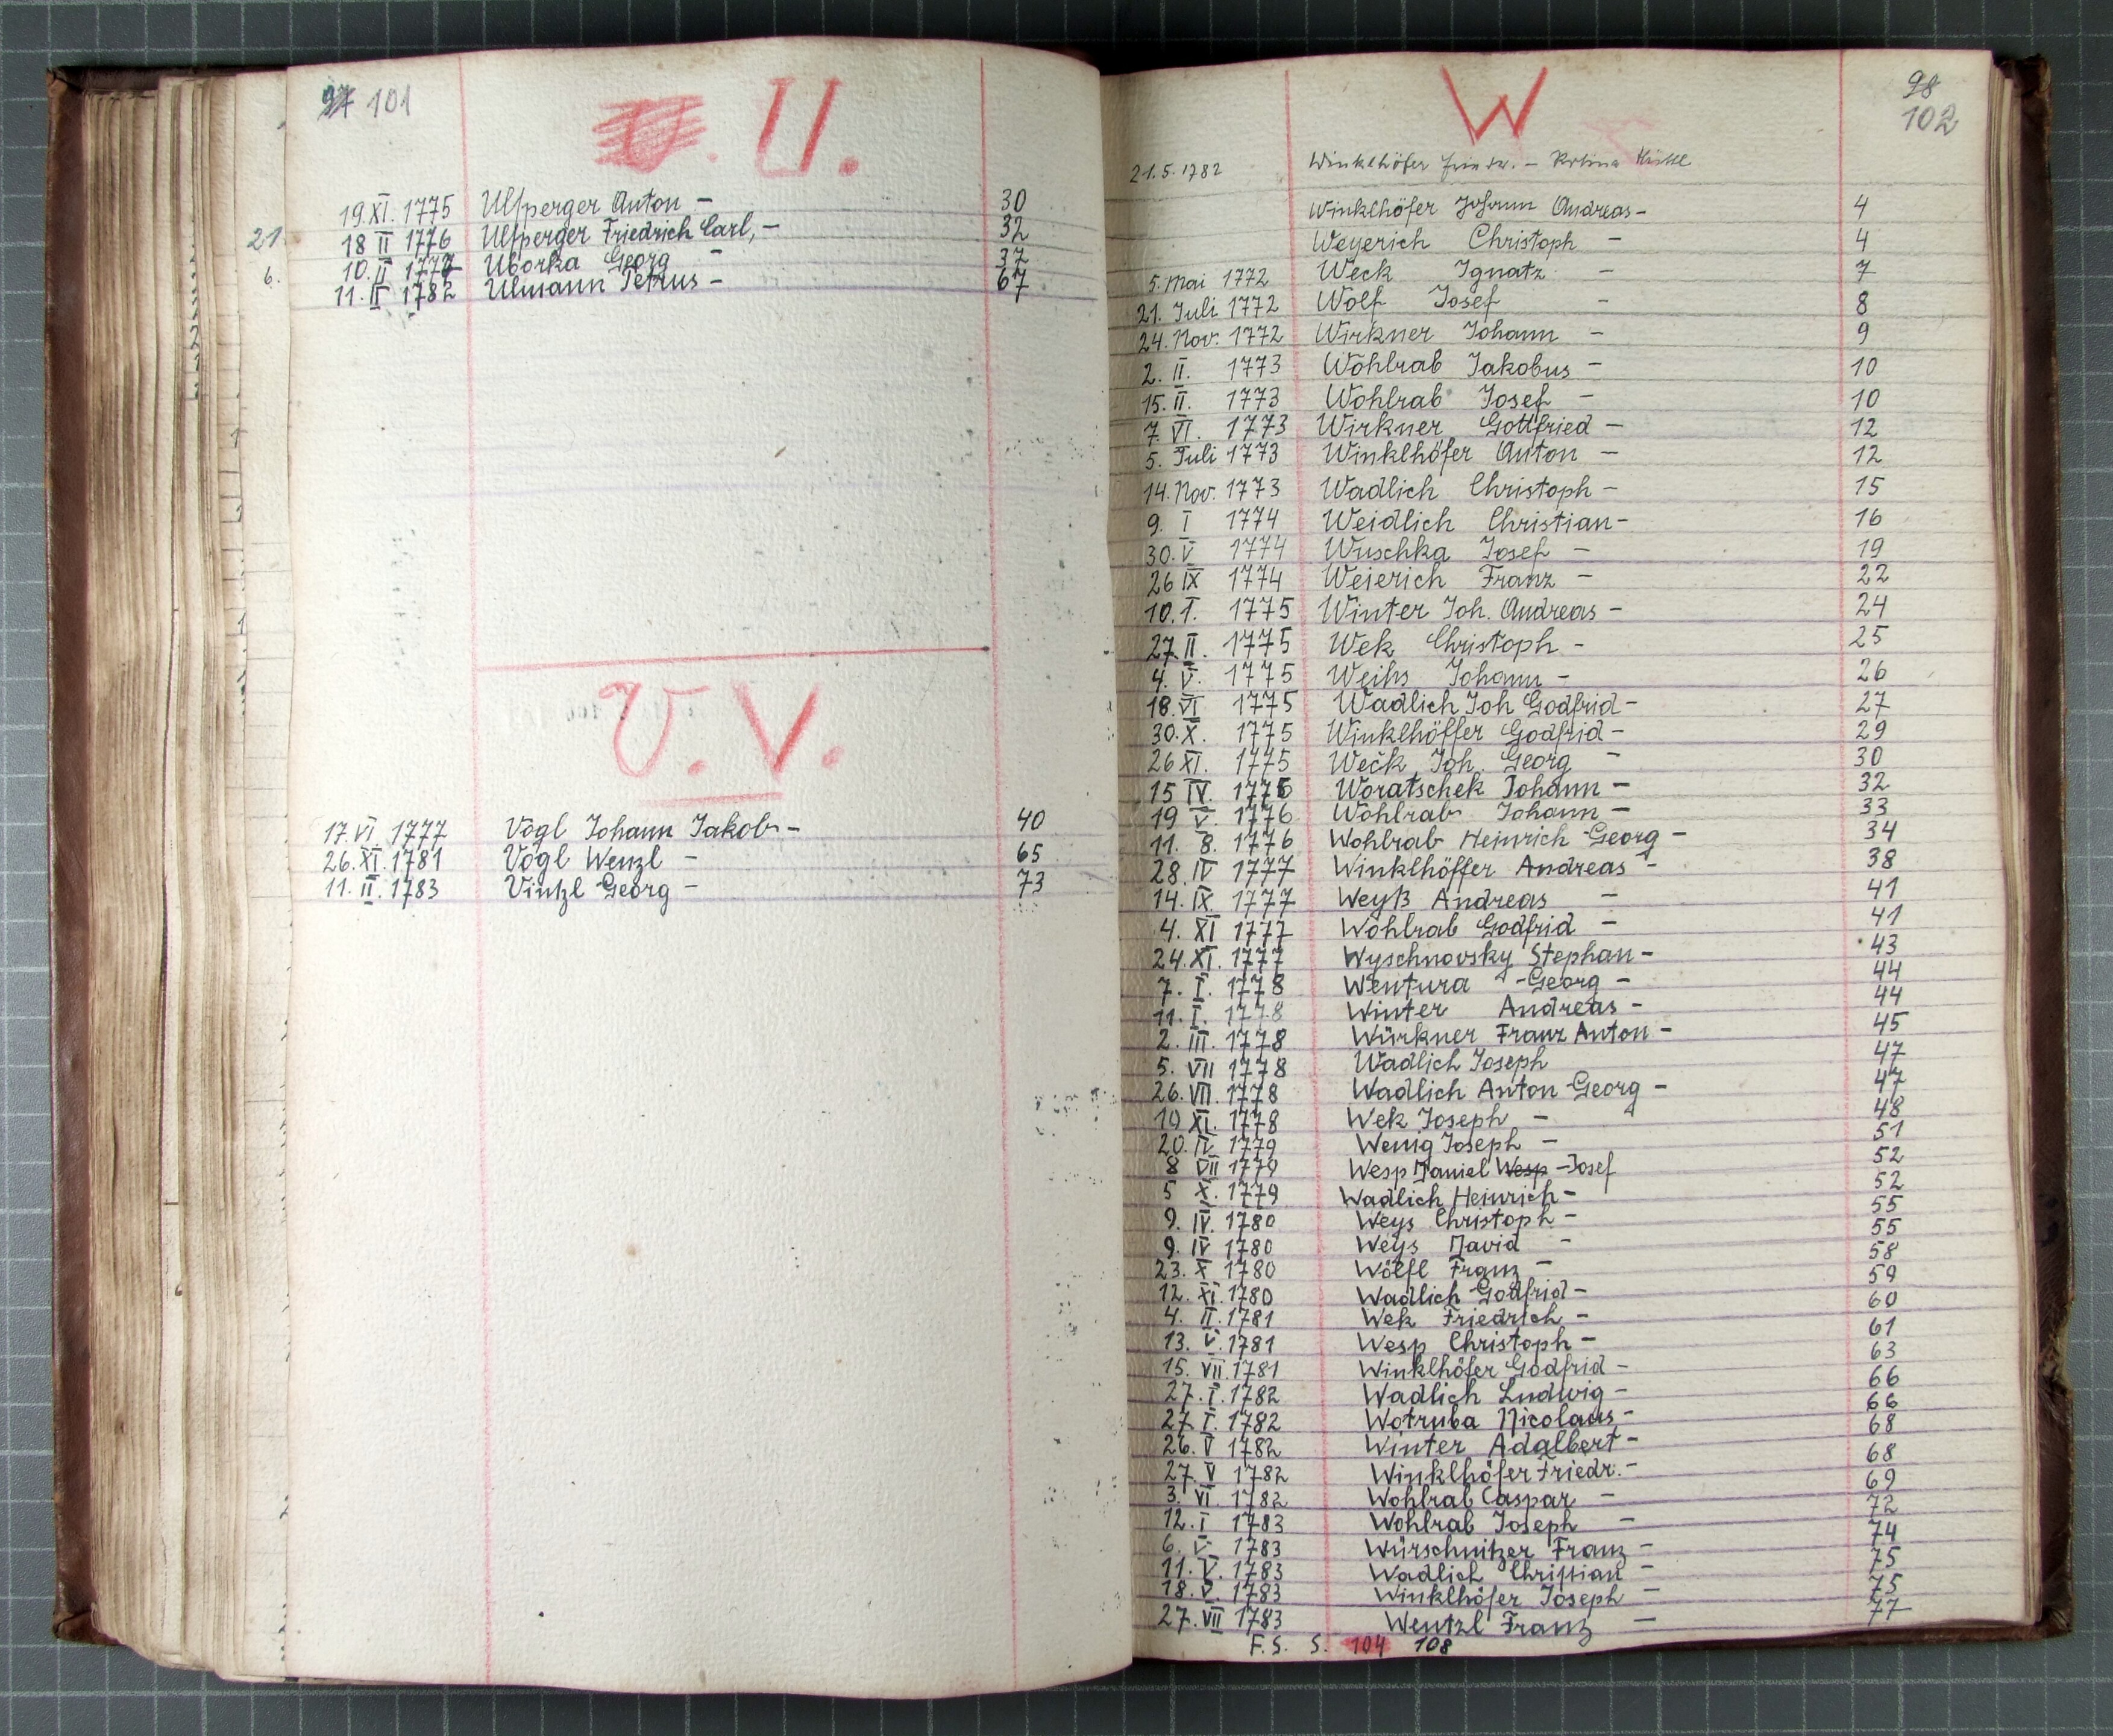 97 101
U. U.
19. XI. 1775 Ulsperger Anton - 30
18 II 1776 Ulsperger Friedrich Carl, - 32
10. II 1777 Uborka Georg - 37
11. II 1782 Ulmann Petrus - 67
21.
6.
V. V.
17. VI. 1777 Vogl Johann Jakob - 40
26. XI. 1781 Vogl Wenzl - 65
11. II. 1783 Vintzl Georg - 73
98
102
W
21.5.1782 Winklhöfer -
Winklhöfer Johann Andreas - 4
Weyerich Christoph - 4
5. Mai 1772 Weck Ignatz - 7
21. Juli 1772 Wolf Josef - 8
24. Nov. 1772 Wirkner Johann - 9
2. II. 1773 Wohlrab Jakobus - 10
15. II. 1773 Wohlrab Josef - 10
7. VI. 1773 Wirkner Gottfried - 12
5. Juli 1773 Winklhöfer Anton - 12
14. Nov. 1773 Wadlich Christoph - 15
9. I 1774 Weidlich Christian - 16
30. V 1774 Wuschka Josef - 19
26 IX 1774 Weierich Franz - 22
10. I. 1775 Winter Joh. Andreas - 24
27. II. 1775 Wek Christoph - 25
4. V. 1775 Weihs Johann - 26
18. VI 1775 Wadlich Joh Godfrid - 27
30. X. 1775 Winklhöffer Godfrid - 29
26 XI. 1775 Weck Joh. Georg - 30
15 IV. 1776 Woratschek Johann - 32
19 V. 1776 Wohlrab Johann - 33
11. 8. 1776 Wohlrab Heinrich Georg - 34
28. IV 1777 Winklhöffer Andreas - 38
14. IX. 1777 Weyß Andreas - 41
4. XI 1777 Wohlrab Godfrid - 41
24. XI. 1777 Wyschnovsky Stephan - 43
7. I. 1778 Wentura Georg - 44
11. I. 1778 Winter Andreas - 44
2. III. 1778 Würkner Franz Anton - 45
5. VII 1778 Wadlich Joseph 47
26. VII. 1778 Wadlich Anton Georg - 47
10 XI. 1778 Wek Joseph - 48
20. IV 1779 Wenig Joseph - 51
8 VII 1779 Wesp Daniel Wesp - Josef 52
5 X. 1779 Wadlich Heinrich - 52
9. IV. 1780 Weys Christoph - 55
9. IV 1780 Weys David - 55
23. X 1780 Wölfl Franz - 58
12. XI. 1780 Wadlich Gottfrid - 59
4. II. 1781 Wek Friedrich - 60
13. V. 1781 Wesp Christoph - 61
15. VII. 1781 Winklhöfer Godfrid - 63
27. I. 1782 Wadlich Ludwig - 66
27 I. 1782 Wotruba Nicolaus - 66
26. V 1782 Winter Adalbert - 68
27. V 1782 Winklhöfer Friedr. - 68
3. VI. 1782 Wohlrab Caspar - 69
12. I 1783 Wohlrab Joseph - 72
6. V. 1783 Würschnitzer Franz - 74
11. V. 1783 Wadlich Christian - 75
18. V. 1783 Winklhöfer Joseph - 75
27. VII 1783 Wentzl Franz - 77
F. S. S. 104 108